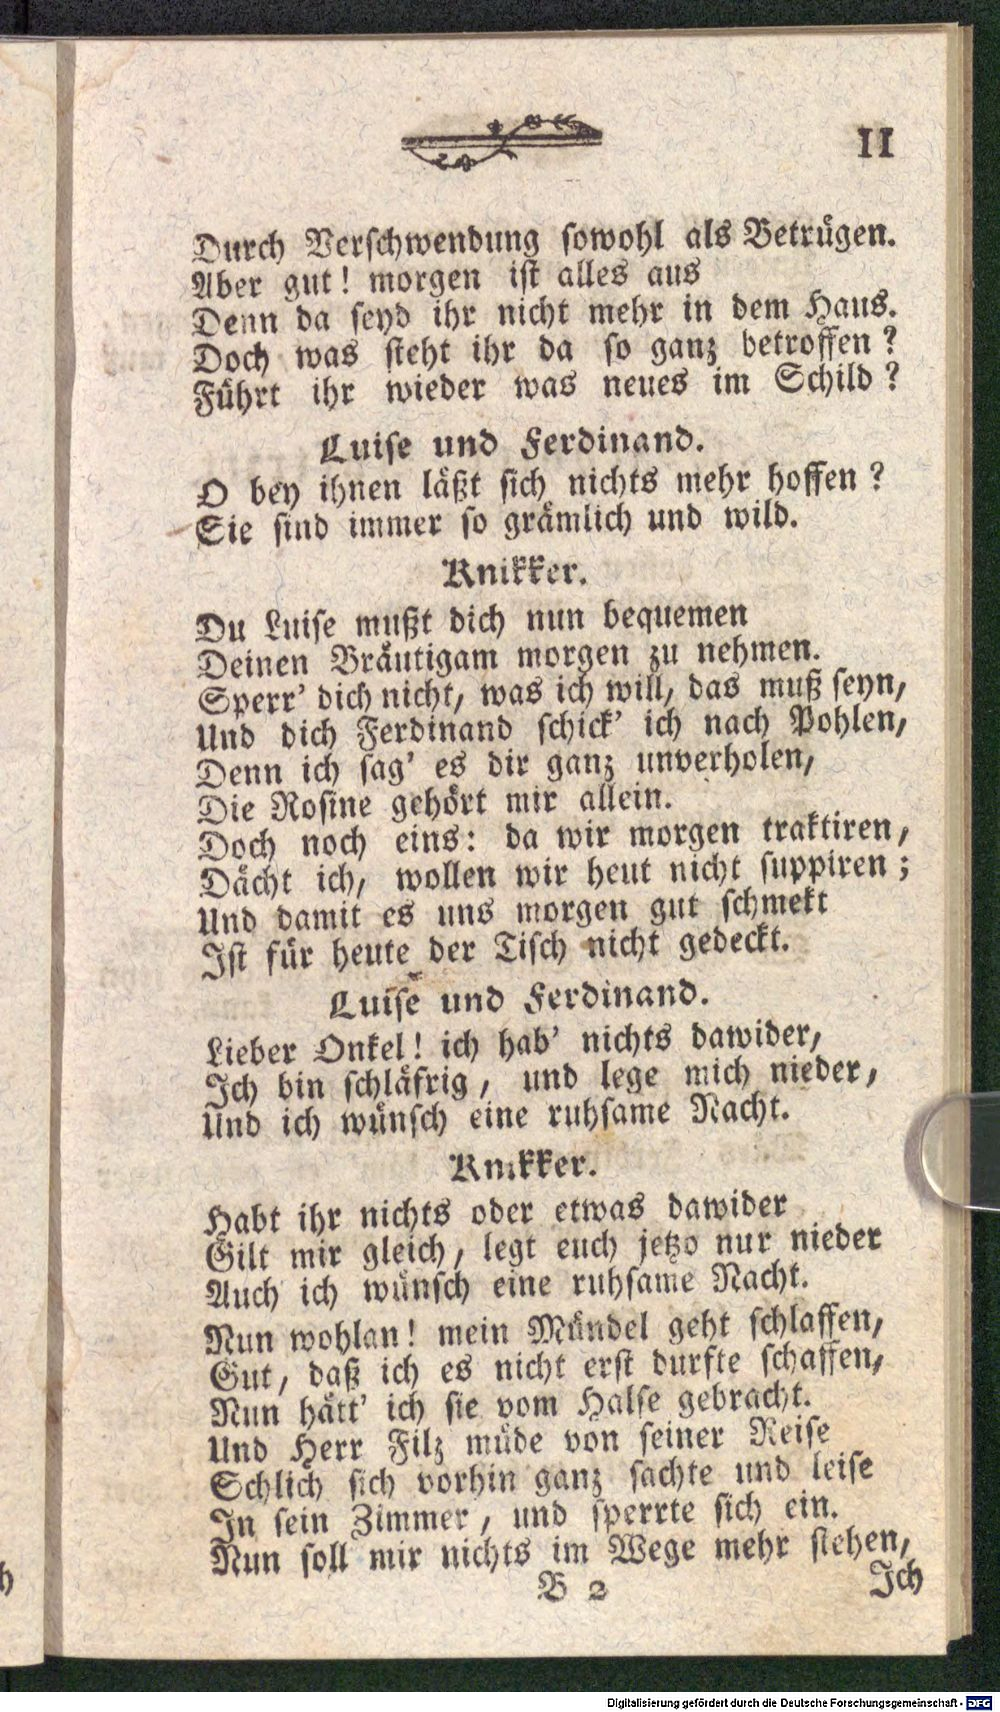 11
Durch Verschwendung sowohl als Betrügen.
Aber gut! morgen ist alles aus
Denn da seyd ihr nicht mehr in dem Haus.
Doch was steht ihr da so ganz betroffen?
Führt ihr wieder was neues im Schild?
Luise und Ferdinand.
O bey ihnen läßt sich nichts mehr hoffen?
Sie sind immer so grämlich und wild.
Knikker.
Du Luise mußt dich nun bequemen
Deinen Bräutigam morgen zu nehmen.
Sperr' dich nicht, was ich will, das muß seyn,
Und dich Ferdinand schick' ich nach Pohlen,
Denn ich sag' es dir ganz unverholen,
Die Rosine gehört mir allein.
Doch noch eins: da wir morgen traktiren,
Dächt ich, wollen wir heut nicht suppiren;
Und damit es uns morgen gut schmekt
Ist für heute der Tisch nicht gedeckt.
Luise und Ferdinand.
Lieber Onkel! ich hab' nichts dawider,
Ich bin schläfrig, und lege mich nieder,
Und ich wünsch eine ruhsame Nacht.
Knikker.
Habt ihr nichts oder etwas dawider
Gilt mir gleich, legt euch jetzo nur nieder
Auch ich wünsch eine ruhsame Nacht.
Nun wohlan! mein Mündel geht schlaffen,
Gut, daß ich es nicht erst durfte schaffen,
Nun hätt' ich sie vom Halse gebracht.
Und Herr Filz müde von seiner Reise
Schlich sich vorhin ganz sachte und leise
In sein Zimmer, und sperrte sich ein.
Nun soll mir nichts im Wege mehr stehen,
B 2
Ich
Digitalisierung gefördert durch die Deutsche Forschungsgemeinschaft - DFG